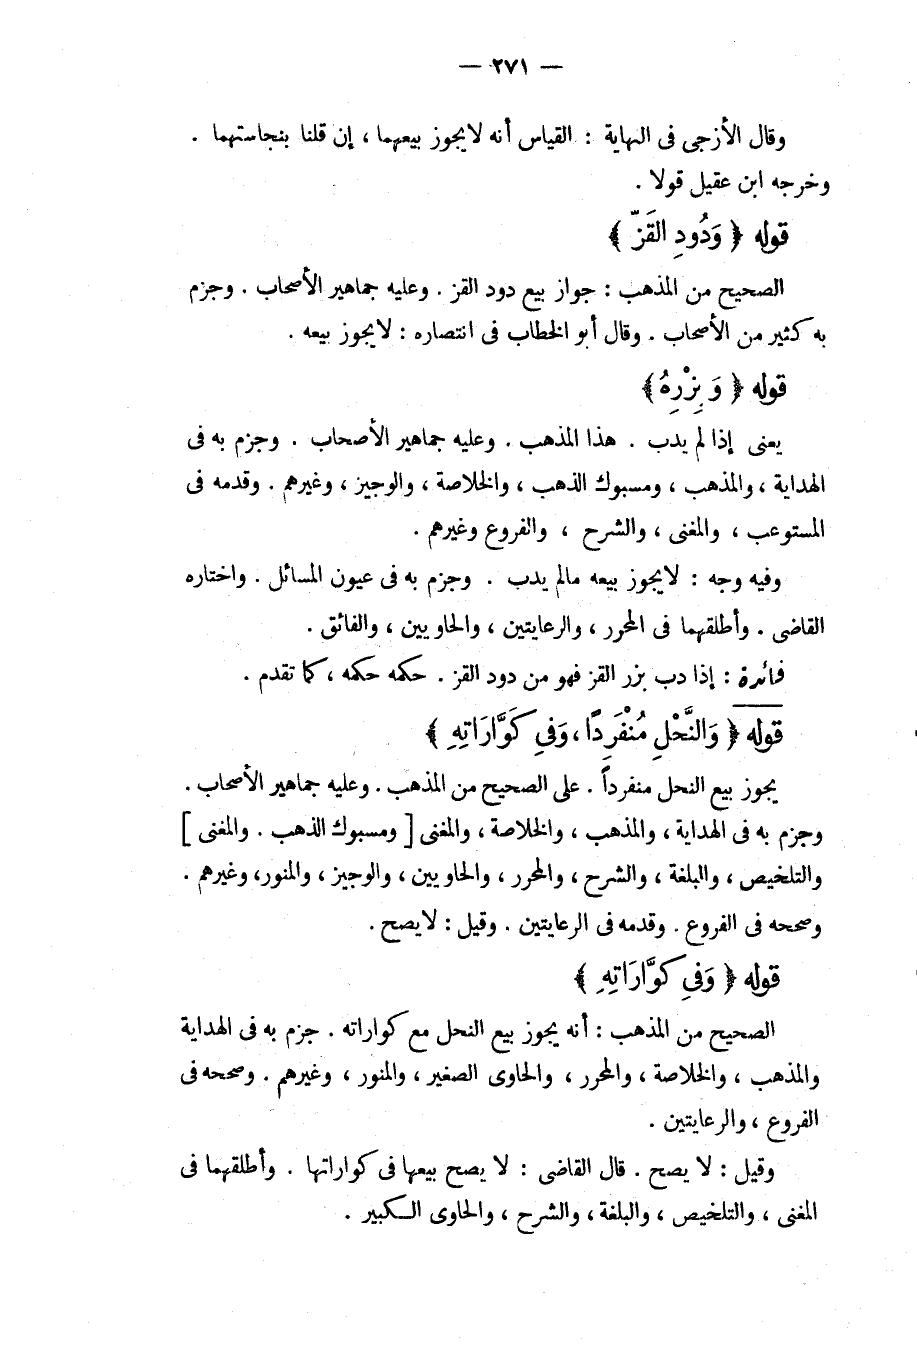 — ٢٧١ —
وقال الأزجى فى النهاية : القياس أنه لايجوز بيعهما ، إن قلنا بنجاستهما .
وخرجه ابن عقيل قولا .
قوله ﴿ وَدُودِ القَزّ ﴾
الصحيح من المذهب : جواز بيع دود القز . وعليه جماهير الأصحاب . وجزم
به كثير من الأصحاب . وقال أبو الخطاب فى انتصاره : لايجوز بيعه .
قوله ﴿ وَ بِزْرِهُ ﴾
يعنى إذا لم يدب . هذا المذهب . وعليه جماهير الأصحاب . وجزم به فى
الهداية ، والمذهب ، ومسبوك الذهب ، والخلاصة ، والوجيز ، وغيرهم . وقدمه فى
المستوعب ، والمغنى ، والشرح ، والفروع وغيرهم .
وفيه وجه : لايجوز بيعه مالم يدب . وجزم به فى عيون المسائل . واختاره
القاضى . وأطلقهما فى المحرر ، والرعايتين ، والحاويين ، والفائق .
فائدة : إذا دب بزر القز فهو من دود القز . حكمه حكمه ، كما تقدم .
قوله ﴿ وَالنَّحْلِ مُنْفَرِدًا ، وَفِي كَوَّارَاتِهِ ﴾
يجوز بيع النحل منفرداً . على الصحيح من المذهب . وعليه جماهير الأصحاب .
وجزم به فى الهداية ، والمذهب ، والخلاصة ، والمغنى [ ومسبوك الذهب . والمغنى ]
والتلخيص ، والبلغة ، والشرح ، والمحرر ، والحاويين ، والوجيز ، والمنور، وغيرهم .
وصححه فى الفروع . وقدمه فى الرعايتين . وقيل : لايصح .
قوله ﴿ وَفِي كَوَّارَاتِهِ ﴾
الصحيح من المذهب : أنه يجوز بيع النحل مع كواراته . جزم به فى الهداية
والمذهب ، والخلاصة ، والمحرر ، والحاوى الصغير ، والمنور ، وغيرهم . وصححه فى
الفروع ، والرعايتين .
وقيل : لا يصح . قال القاضى : لا يصح بيعها فى كواراتها . وأطلقهما فى
المغنى ، والتلخيص ، والبلغة ، والشرح ، والحاوى الكبير .